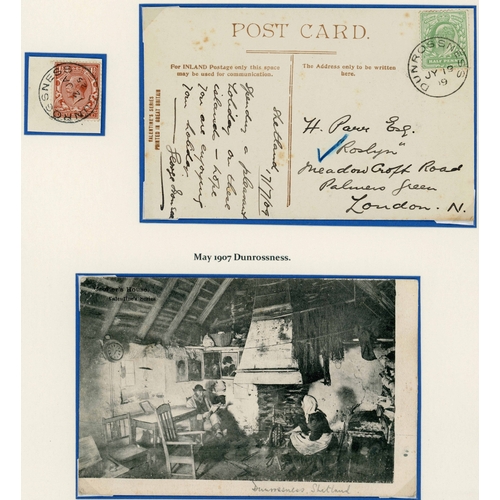 POST CARD.
For INLAND Postage only this space
may be used for communication.
The Address only to be
written here.
VALENTINE'S SERIES
PRINTED IN GREAT BRITAIN
Shetland 7/7/09
Spending a pleasant
holiday on these
islands - hope
you are enjoying
your holiday.
H. Parr Esq.
"Roslyn"
Meadow Croft Road
Palmers Green
London. N.
DUNROSSNESS
JY 19
DUNROSSNESS
May 1907 Dunrossness.
House.
Valentine's Series
Dunrossness Shetland